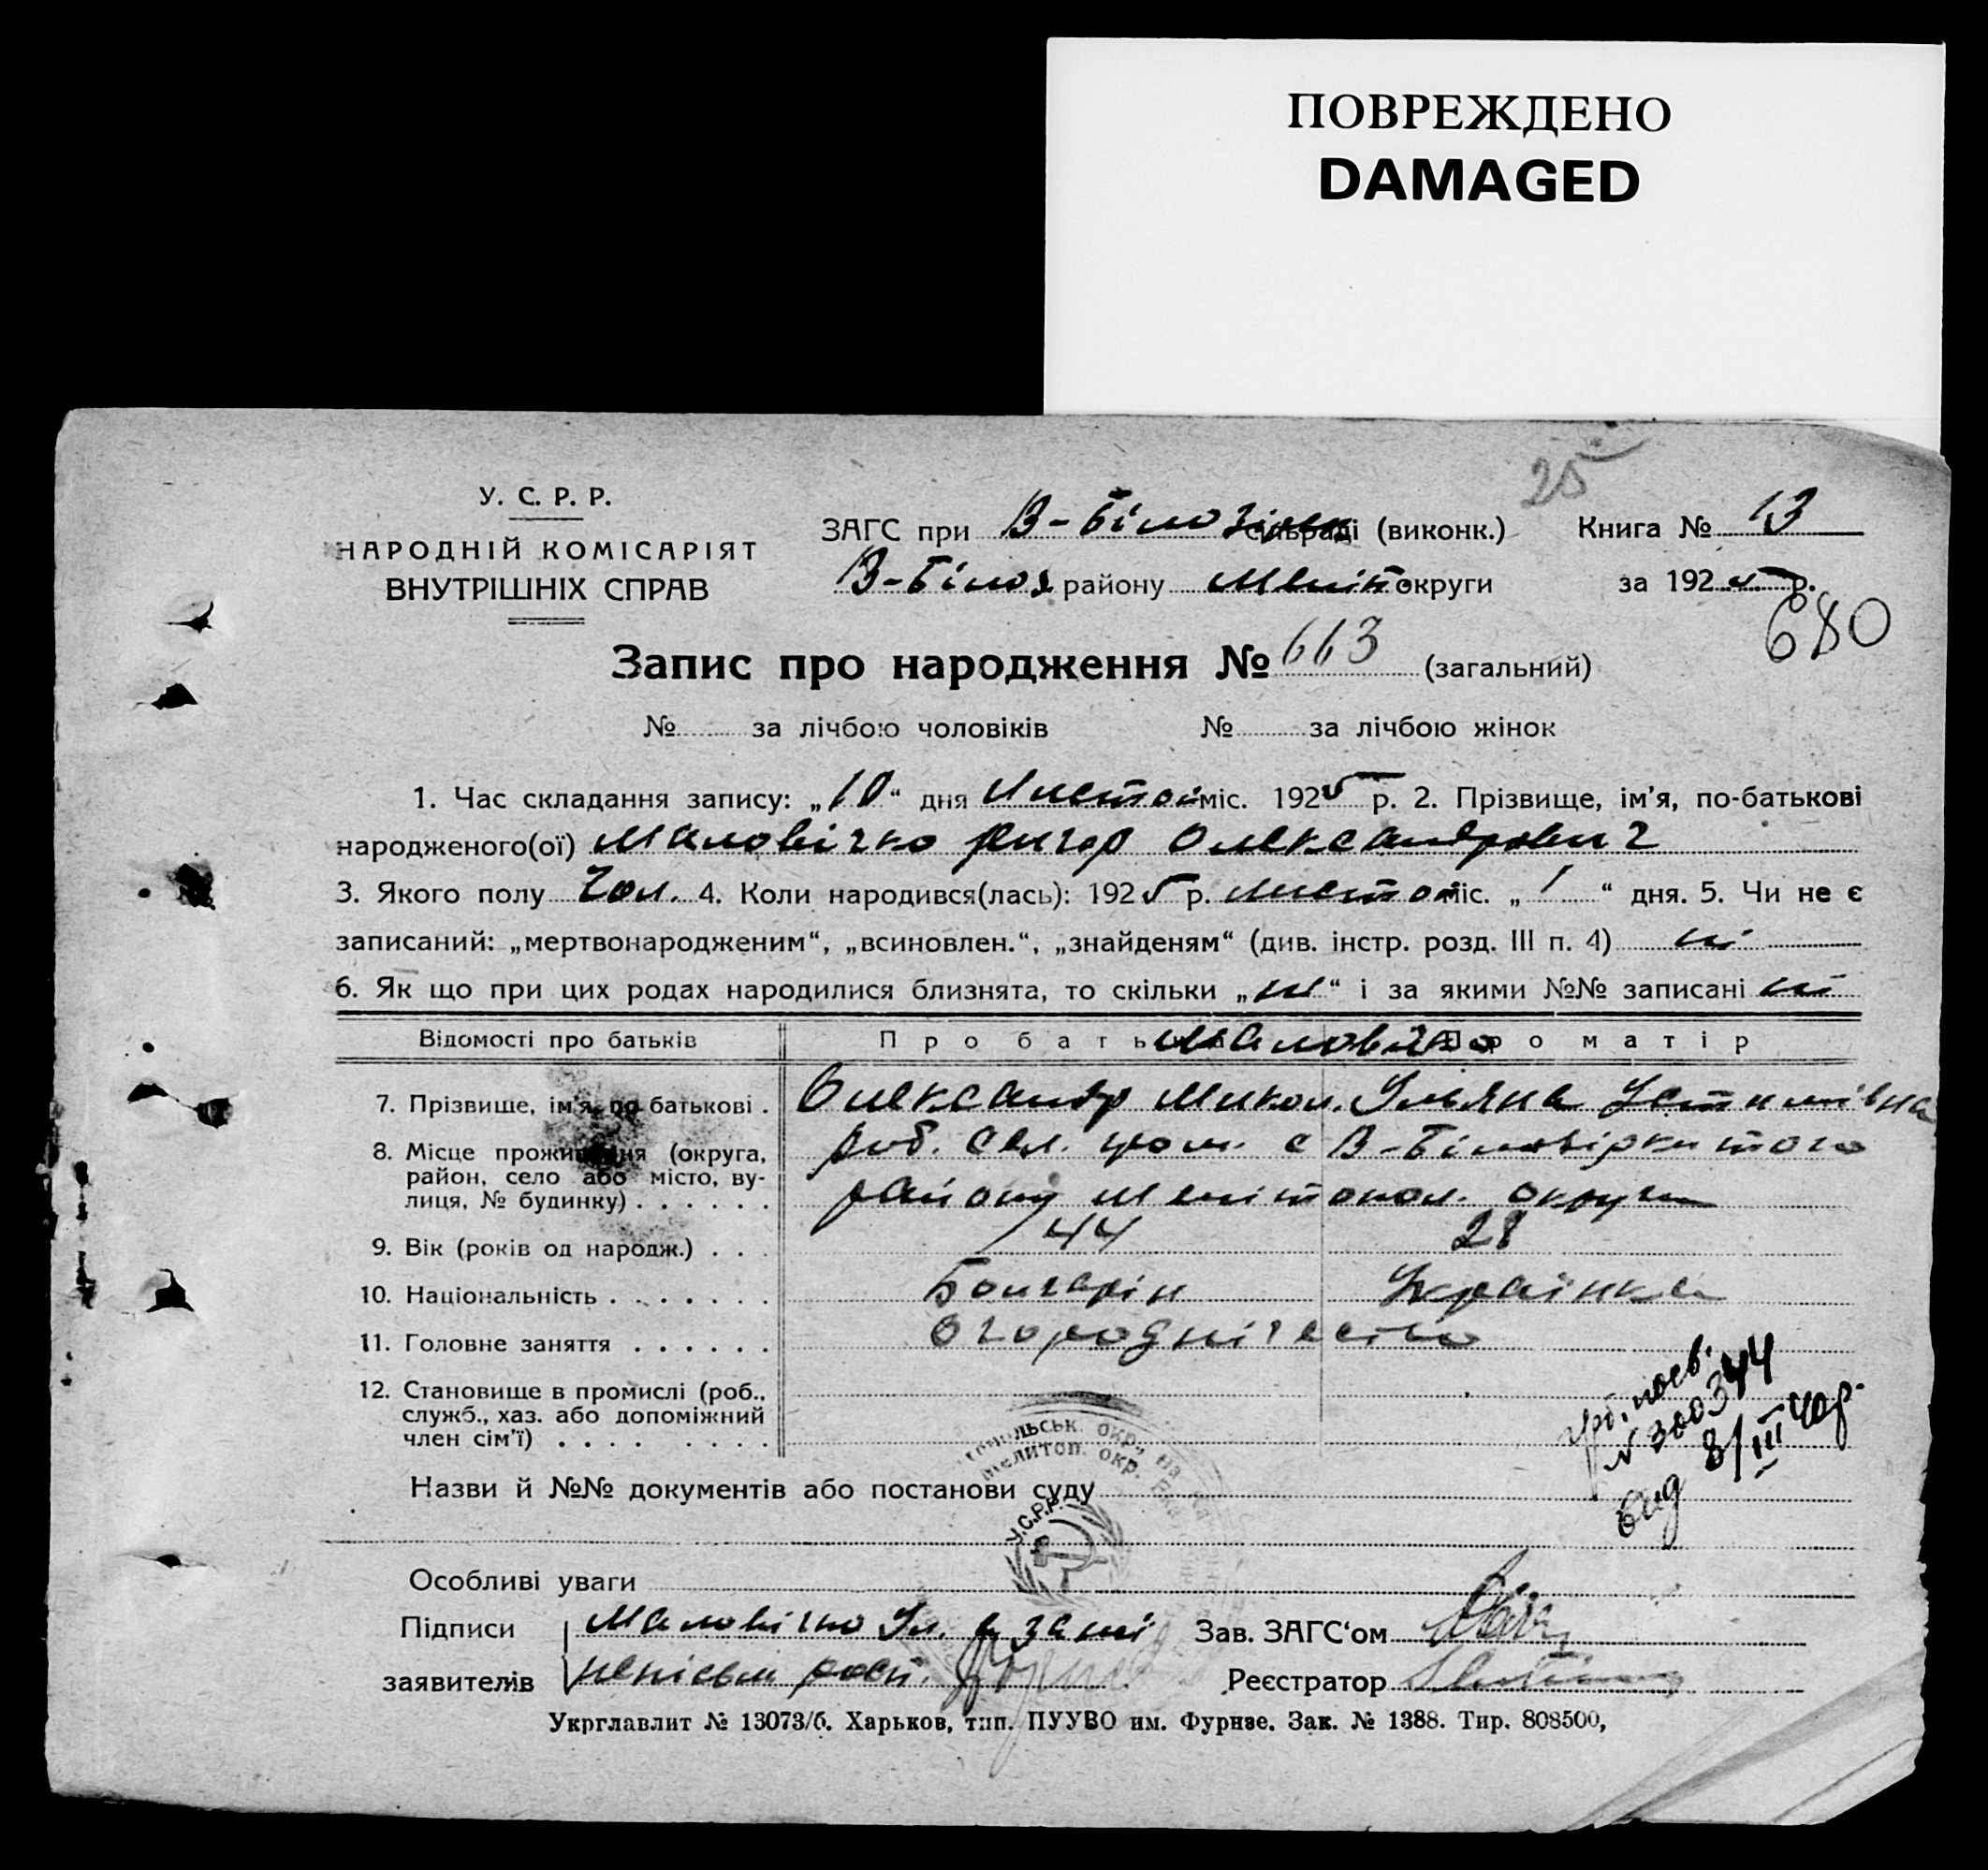 ПОВРЕЖДЕНО
DAMAGED
25
У. С. Р. Р.
НАРОДНІЙ КОМІСАРІЯТ
ВНУТРІШНІХ СПРАВ
ЗАГС при В-Білозірск сільраді (виконк.) Книга № 13
В-Білоз району Меліт округи за 1925 р.
680
Запис про народження № 663 (загальний)
№ за лічбою чоловіків № за лічбою жінок
1. Час складання запису: „10“ дня Листоп міс. 1925 р. 2. Прізвище, ім’я, по-батькові
народженого(ої) Маловічко Олександрович
3. Якого полу Чол. 4. Коли народився(лась): 1925 р. листоп міс. „1“ дня. 5. Чи не є
записаний: „мертвонародженим“, „всиновлен.“, „знайденям“ (див. інстр. розд. III п. 4) ні
6. Як що при цих родах народилися близнята, то скільки „ні“ і за якими №№ записані ні
Відомості про батьків Про батька Маловічко Про матір
7. Прізвище, ім’я, по-батькові . Олександр Микол. Ульяна Устимівна
8. Місце проживання (округа, район, село або місто, вулиця, № будинку) . . . . . . с В-Білозірки того
району Мелітопол. округи
9. Вік (років од народж.) . . . 44 28
10. Національність . . . . . . . Болгарін Українка
11. Головне заняття . . . . . . Огороднічество
12. Становище в промислі (роб.,
служб., хаз. або допоміжний
член сім’ї) . . . . . . . . .
посв.
№ 300344
вид 8/III 40р.
Мелитоп. окр.
У.С.Р.Р.
Назви й №№ документів або постанови суду
Особливі уваги
Підписи Маловічко Ул. а за ні Зав. ЗАГС‘ом
заявителів неписьм росп. Реєстратор
Укрглавлит № 13073/б. Харьков, тип. ПУУВО им. Фрунзе. Зак. № 1388. Тир. 808500,